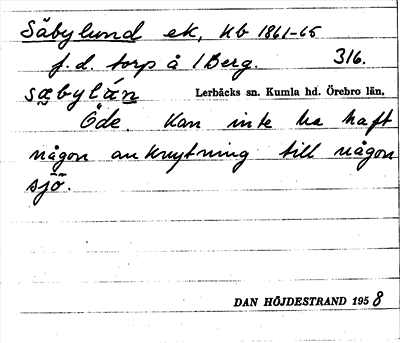 Säbylund ek, hb 1861-65
f. d. torp å 1 Berg. 316.
sæbylán Lerbäcks sn. Kumla hd. Örebro län.
Öde. Kan inte ha haft
någon anknytning till någon
sjö.
DAN HÖJDESTRAND 1958